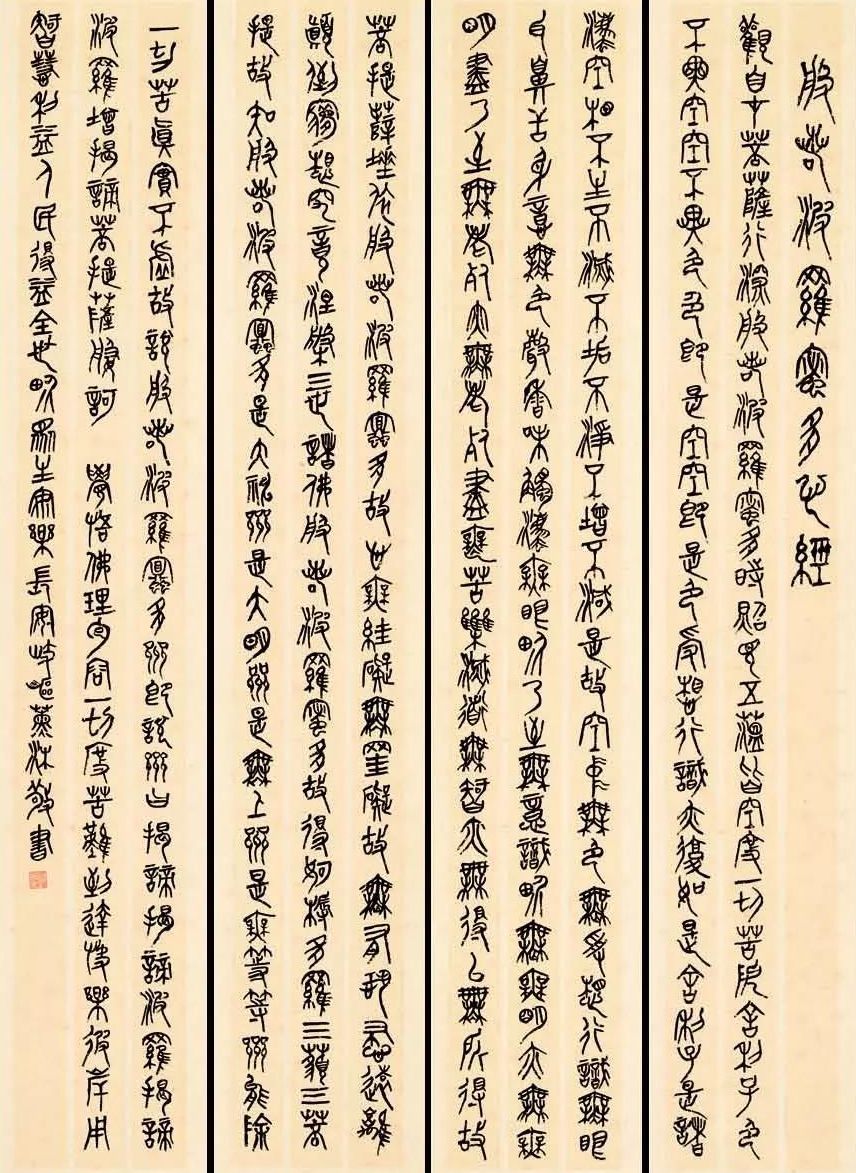 般若波羅蜜多心經
觀自在菩薩行深般若波羅蜜多時照見五蘊皆空度一切苦厄舍利子色
不異空空不異色色即是空空即是色受想行識亦復如是舍利子是諸
法空相不生不滅不垢不淨不增不減是故空中無色無受想行識無眼
耳鼻舌身意無色聲香味觸法無眼界乃至無意識界無無明亦無無
明盡乃至無老死亦無老死盡無苦集滅道無智亦無得以無所得故
菩提薩埵依般若波羅蜜多故心無罣礙無罣礙故無有恐怖遠離
顛倒夢想究竟涅槃三世諸佛般若波羅蜜多故得阿耨多羅三藐三菩
提故知般若波羅蜜多是大神咒是大明咒是無上咒是無等等咒能除
一切苦真實不虛故說般若波羅蜜多咒即說咒曰揭諦揭諦波羅揭諦
波羅增揭諦菩提薩婆訶 學悟佛理可容一切度苦難到達樂彼岸用
智慧利益人民得益全世界眾生安樂長安薰沐敬書